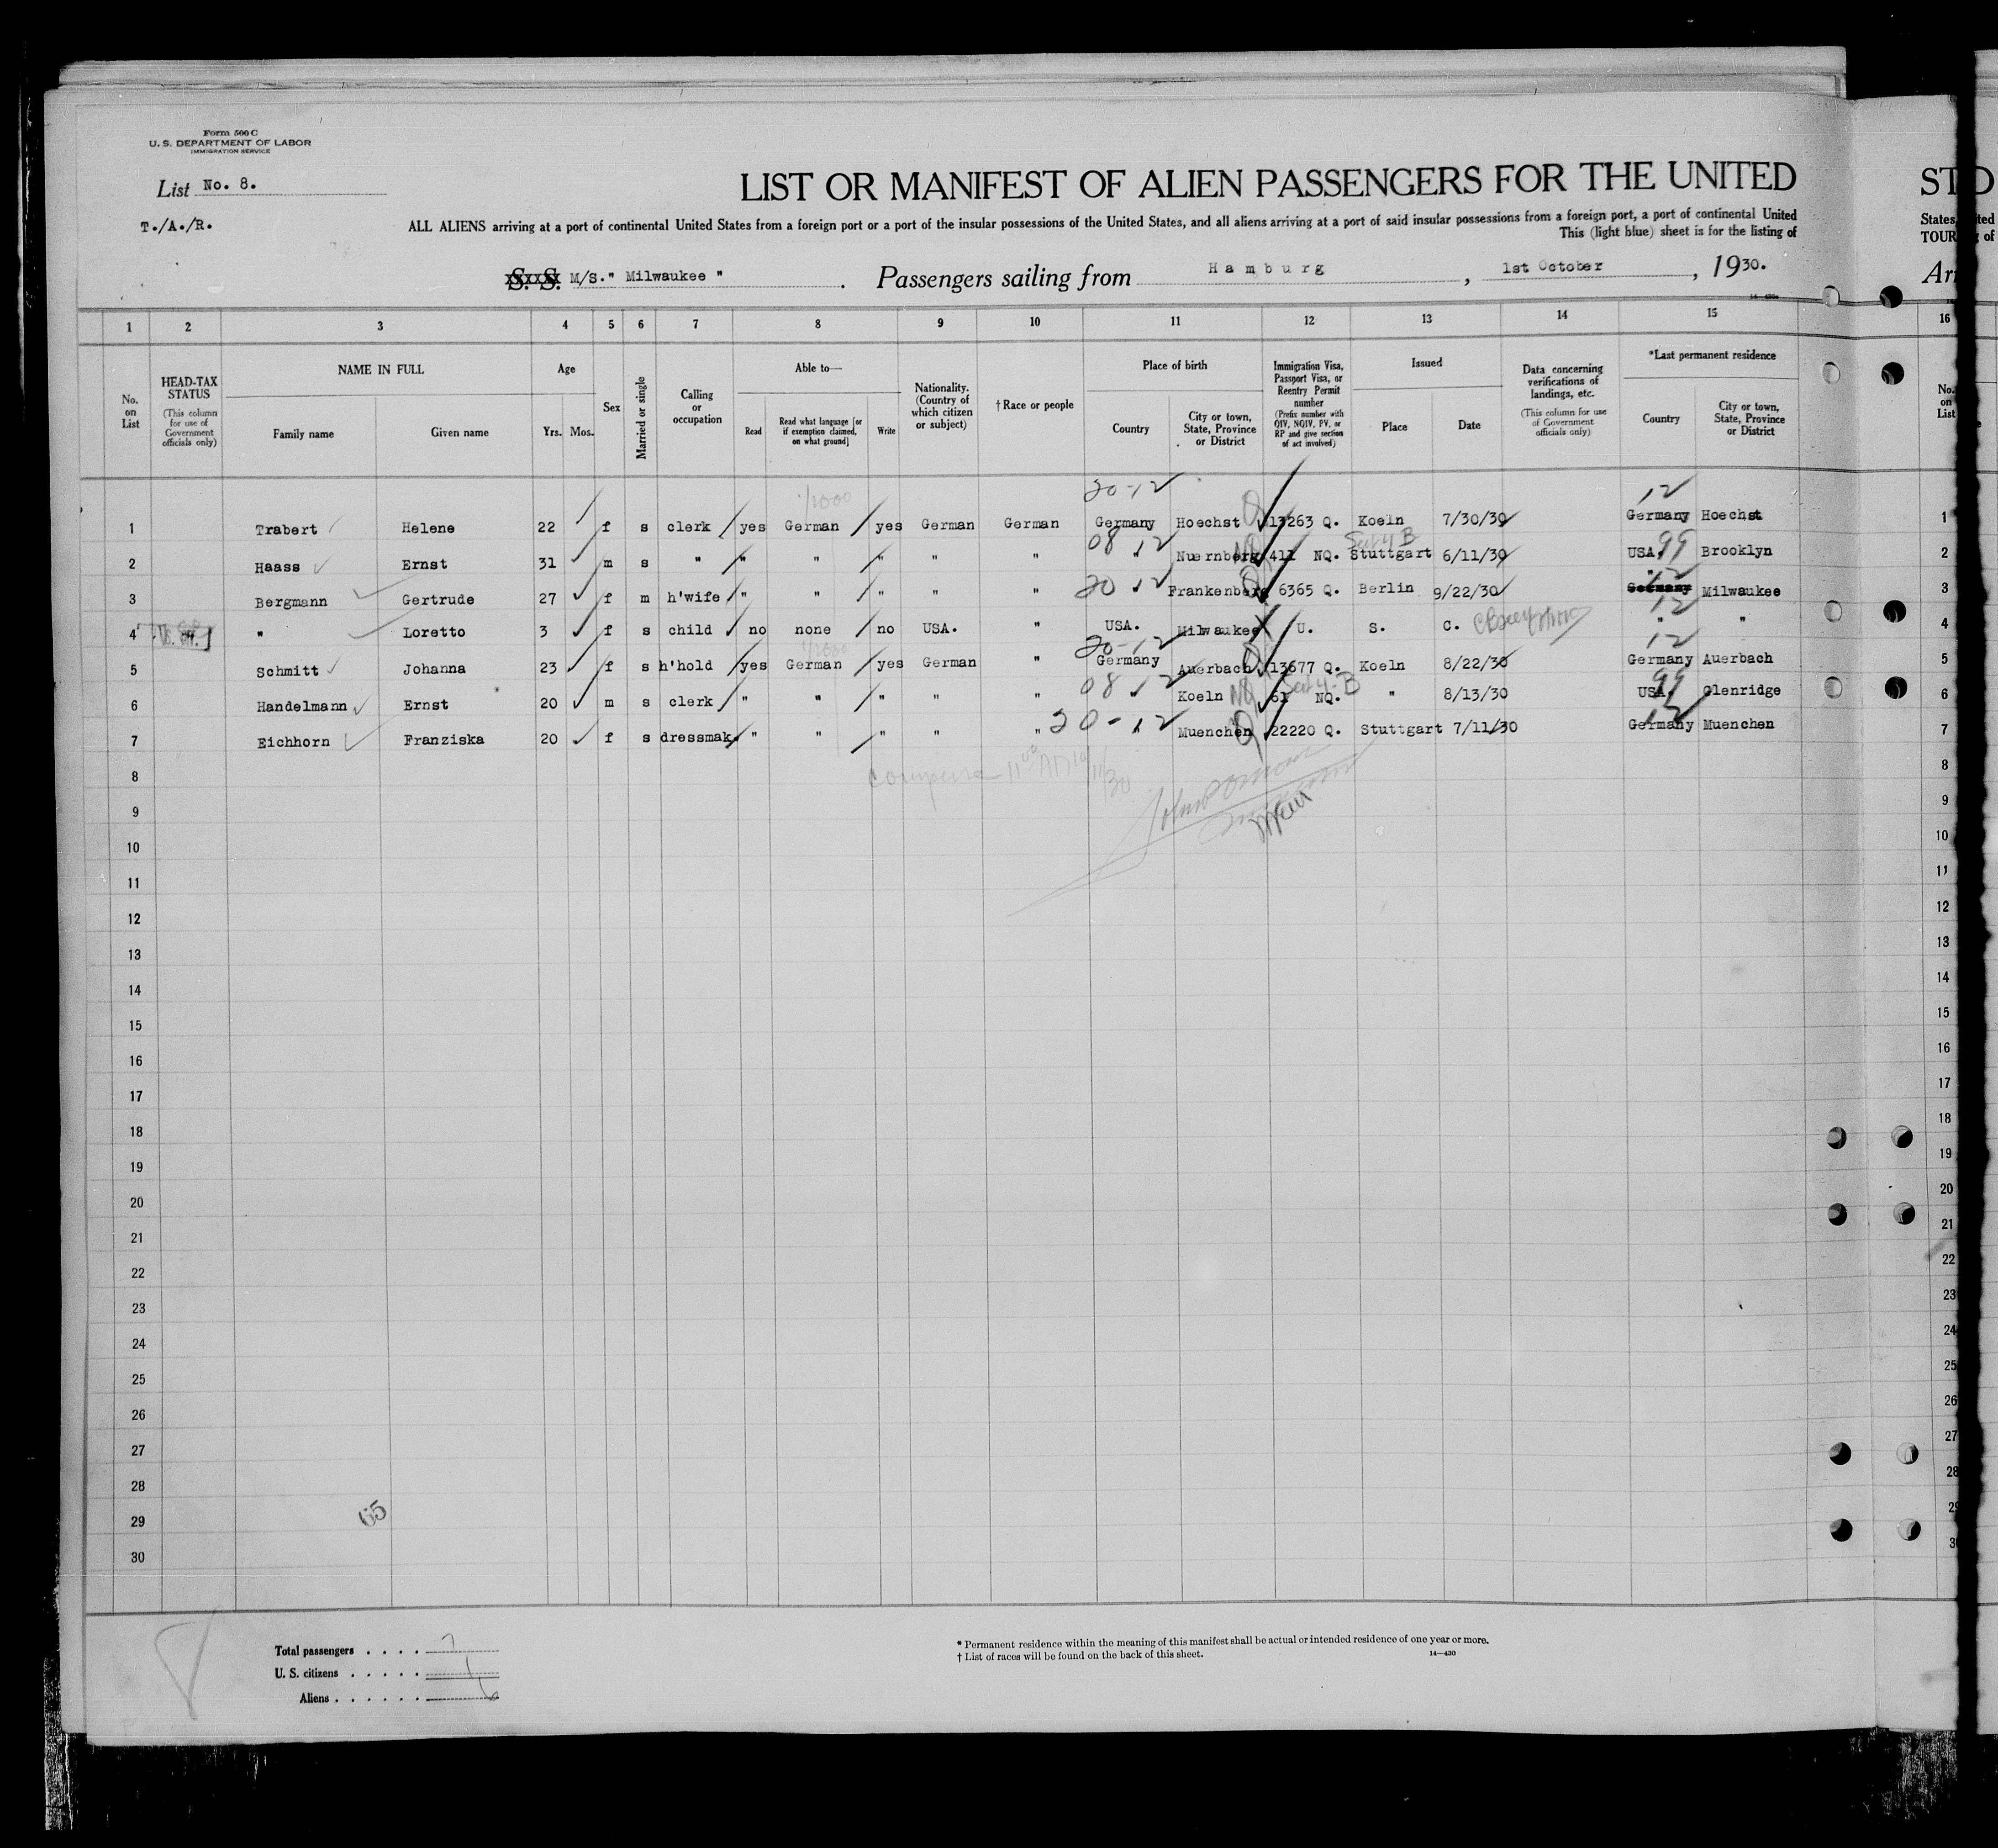 Form 500 C
U. S. DEPARTMENT OF LABOR
IMMIGRATION SERVICE
List No. 8.
T./A./R.
LIST OR MANIFEST OF ALIEN PASSENGERS FOR THE UNITED
ST
ALL ALIENS arriving at a port of continental United States from a foreign port or a port of the insular possessions of the United States, and all aliens arriving at a port of said insular possessions from a foreign port, a port of continental United
States,
This (light blue) sheet is for the listing of
TOUR
S. S. M/S." Milwaukee ". Passengers sailing from Hamburg, 1st October, 1930.
Arr
1 2 3 4 5 6 7 8 9 10 11 12 13 14 15 16
No. on List
HEAD-TAX STATUS
(This column for use of Government officials only)
NAME IN FULL
Family name
Given name
Age
Yrs. Mos.
Sex
Married or single
Calling or occupation
Able to—
Read
Read what language [or if exemption claimed, on what ground]
Write
Nationality. (Country of which citizen or subject)
† Race or people
Place of birth
Country
City or town, State, Province or District
Immigration Visa, Passport Visa, or Reentry Permit number
(Prefix number with QIV, NQIV, PV, or RP and give section of act involved)
Issued
Place
Date
Data concerning verifications of landings, etc.
(This column for use of Government officials only)
*Last permanent residence
Country
City or town, State, Province or District
No. on List
20-12 12
1 Trabert Helene 22 f s clerk yes German yes German German Germany Hoechst Q 13263 Q. Koeln 7/30/30 Germany Hoechst 1
08 12 Sect 4 B 99
2 Haass Ernst 31 m s " " " " " " " Nuernberg NQ 411 NQ. Stuttgart 6/11/30 USA. Brooklyn 2
20 12 " 12
3 Bergmann Gertrude 27 f m h'wife " " " " " Frankenberg Q 6365 Q. Berlin 9/22/30 Germany Milwaukee 3
12
4 U.S. " Loretto 3 f s child no none no USA. " USA. Milwaukee U. S. C. " " 4
20-12 12
5 Schmitt Johanna 23 f s h'hold yes German yes German " Germany Auerbach Q 13677 Q. Koeln 8/22/30 Germany Auerbach 5
08 12 Sect 4-B 99
6 Handelmann Ernst 20 m s clerk " " " " " " Koeln NQ 61 NQ. " 8/13/30 USA. Glenridge 6
20-12 12
7 Eichhorn Franziska 20 f s dressmak. " " " " " " Muenchen Q 22220 Q. Stuttgart 7/11/30 Germany Muenchen 7
8 8
9 9
10 10
11 11
12 12
13 13
14 14
15 15
16 16
17 17
18 18
19 19
20 20
21 21
22 22
23 23
24 24
25 25
26 26
27 27
28 28
29 29
30 30
65
Total passengers . . . . 7
U. S. citizens . . . . . 1
Aliens . . . . . . 6
* Permanent residence within the meaning of this manifest shall be actual or intended residence of one year or more.
† List of races will be found on the back of this sheet.
14—430